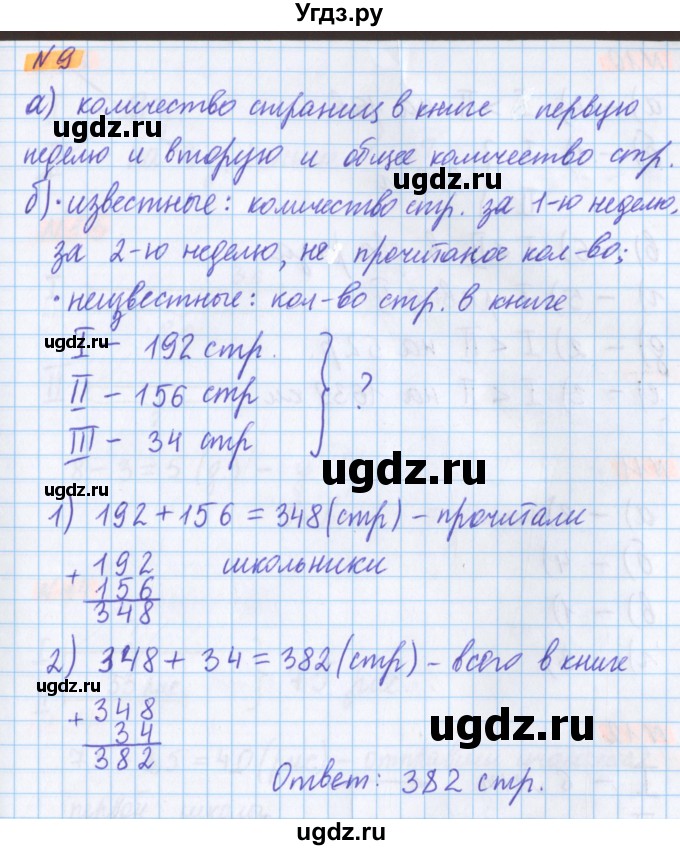 Угдз.ру
N 9
а) количество страниц в книге первую
ugdz.ru
неделю и вторую и общее количество стр.
ugdz.ru
б) · известные: количество стр. за 1-ю неделю,
за 2-ю неделю, не прочитаное кол-во;
· неизвестные: кол-во стр. в книге
ugdz.ru
I - 192 стр.
II - 156 стр ?
III - 34 стр
ugdz.ru
ugdz.ru
1) 192 + 156 = 348 (стр) - прочитали
школьники
+ 192
156
348
ugdz.ru
2) 348 + 34 = 382 (стр) - всего в книге
ugdz.ru
+ 348
34
382
ugdz.ru
ugdz.ru
Ответ: 382 стр.
ugdz.ru